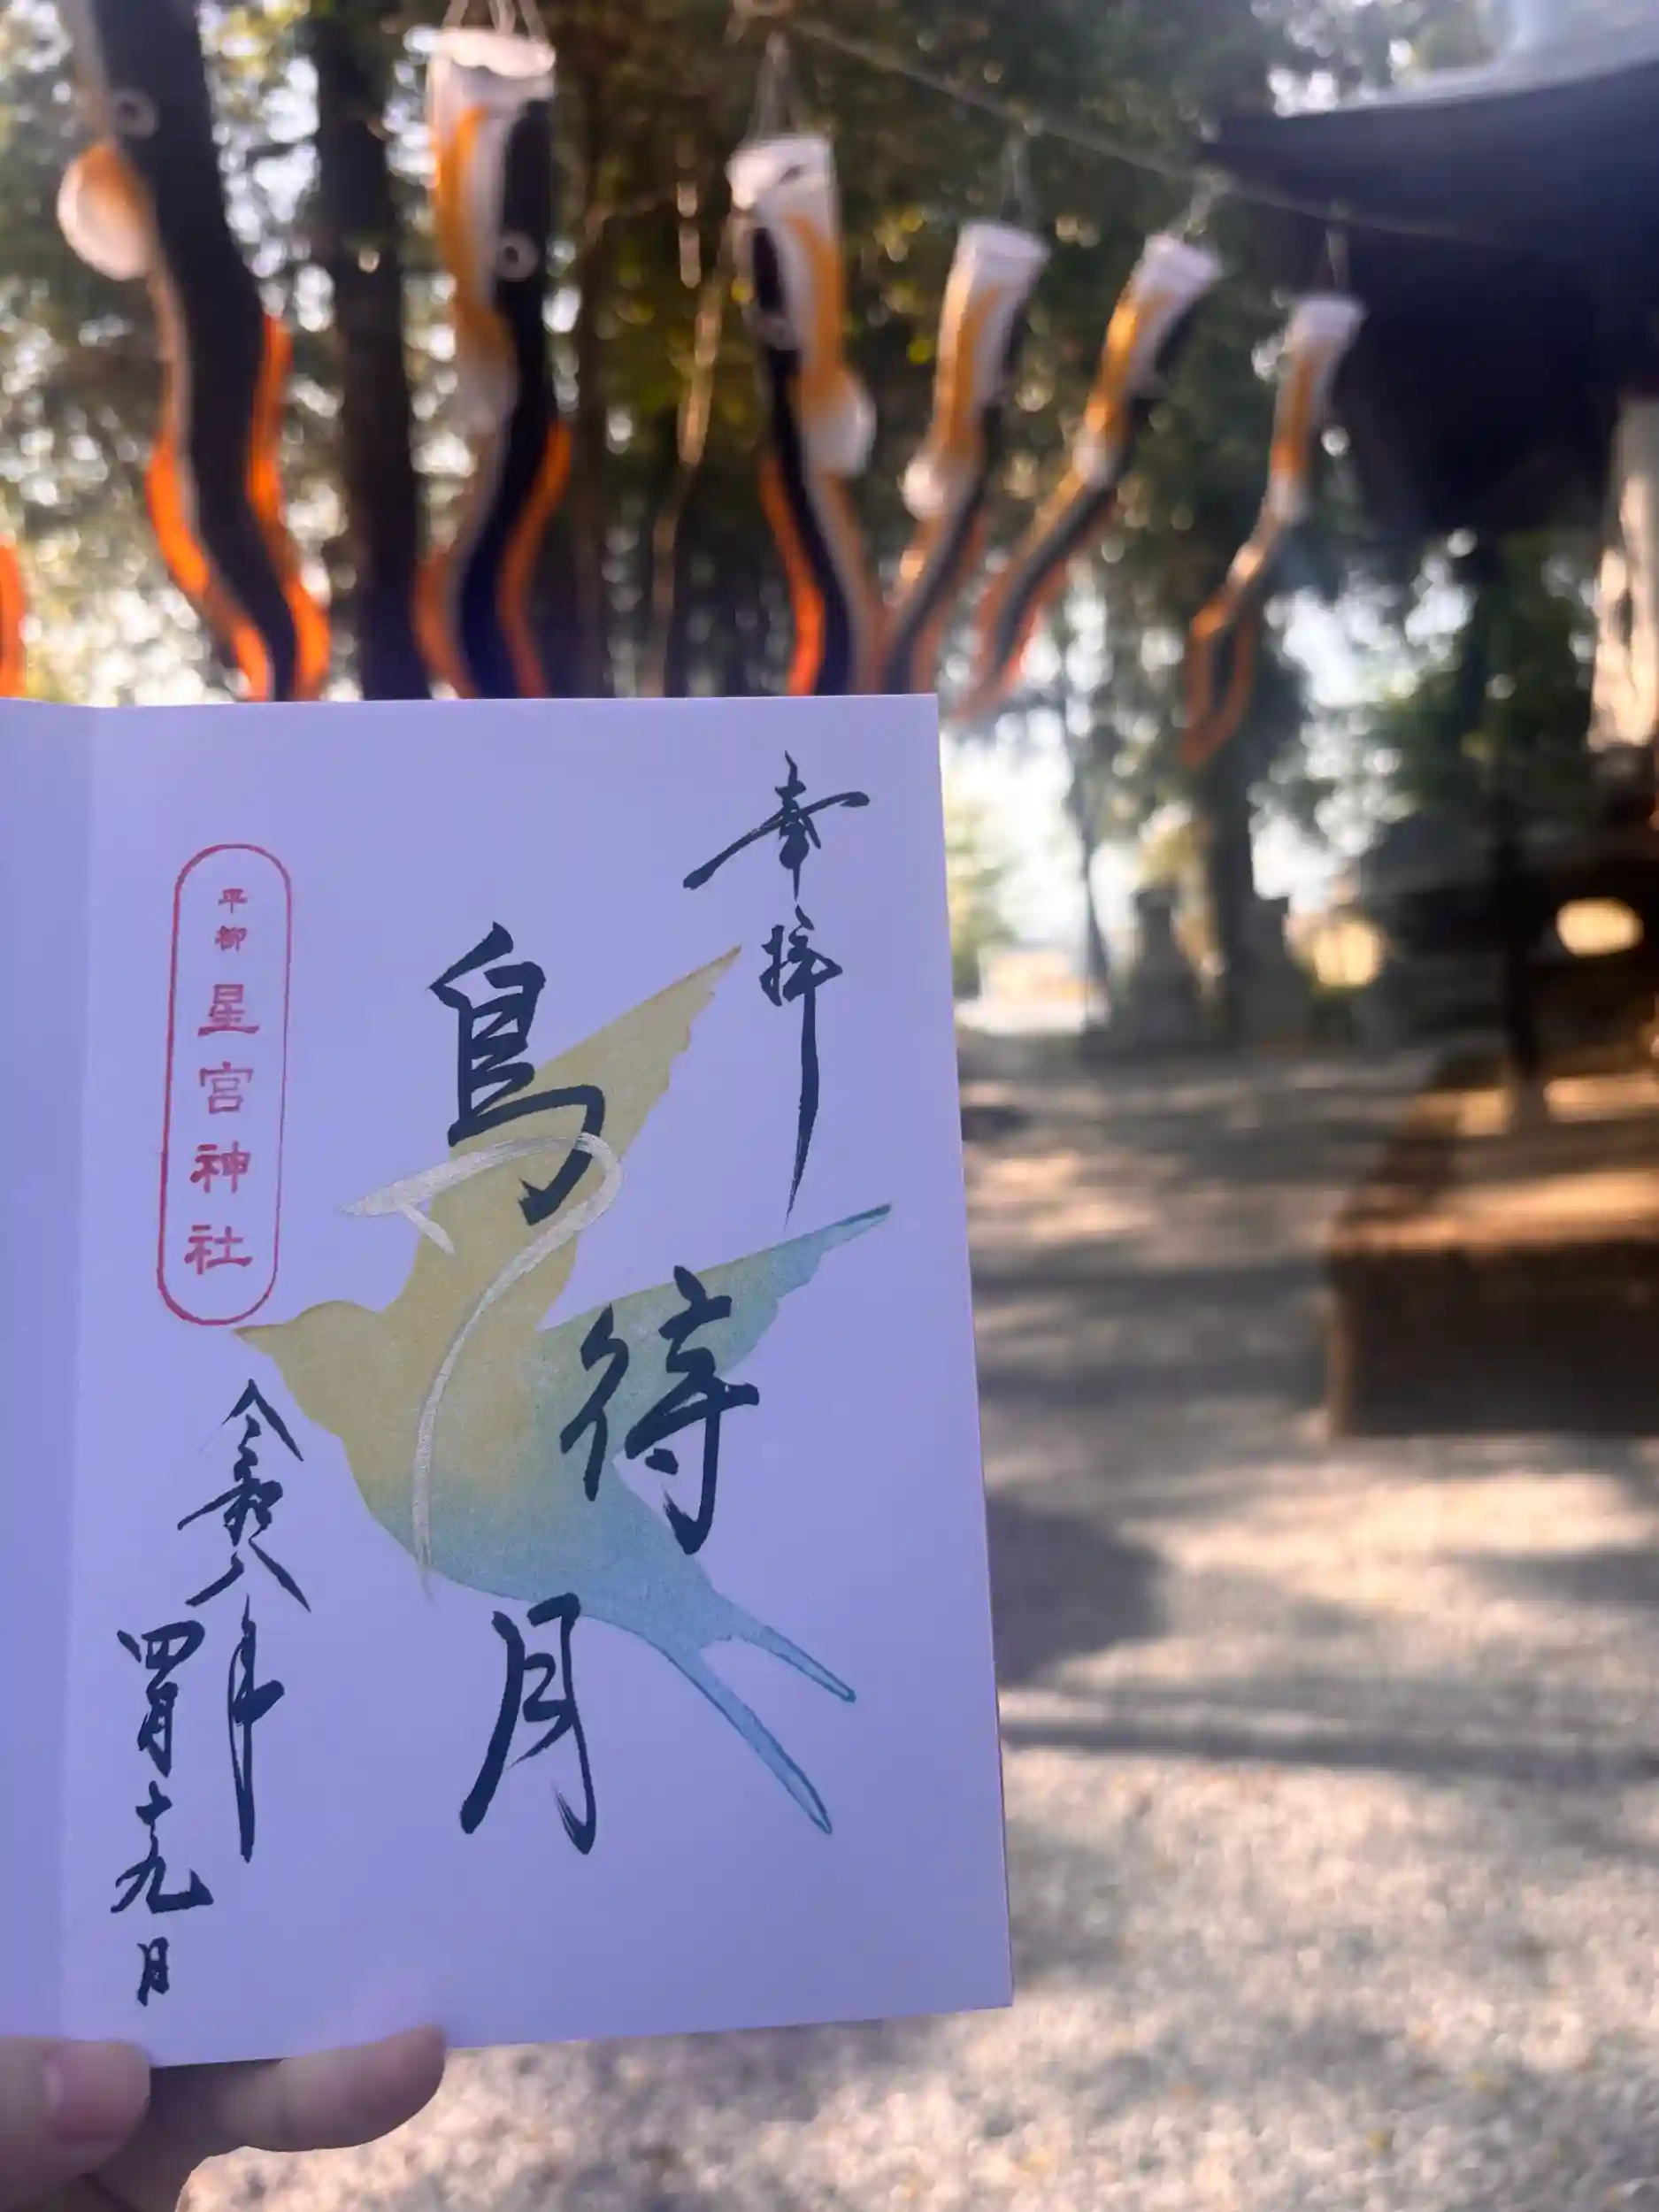 奉拝
鳥待月
平柳星宮神社
令和八年
四月十九日